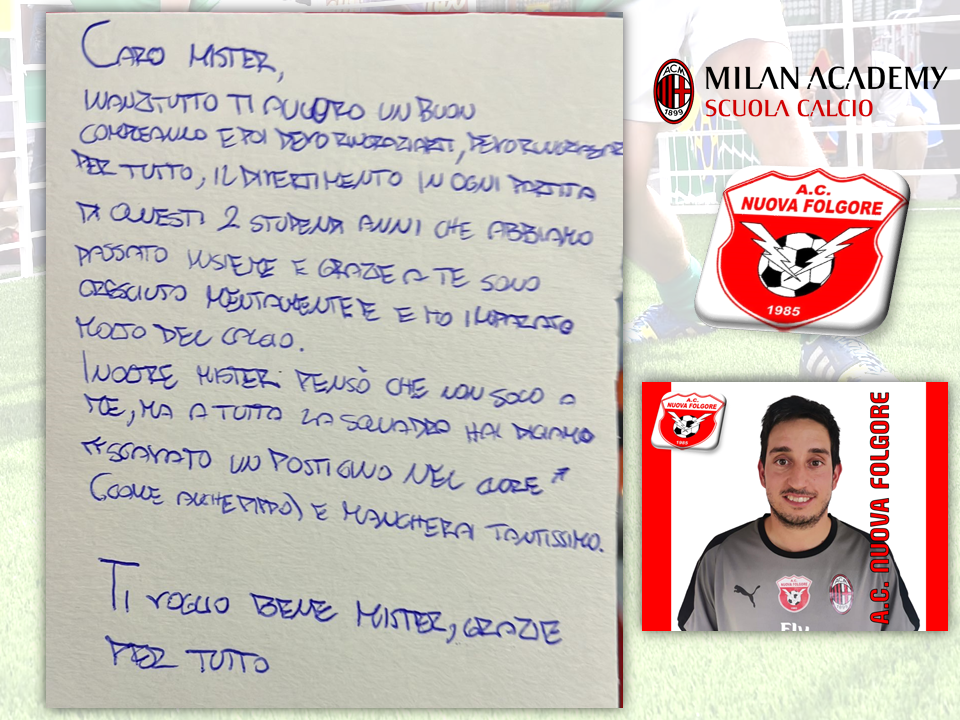 CARO MISTER,
INNANZITUTTO TI AUGURO UN BUON
COMPLEANNO E POI DEVO RINGRAZIARTI, DEVO RINGRAZIARTI
PER TUTTO, IL DIVERTIMENTO IN OGNI PARTITA
DI QUESTI 2 STUPENDI ANNI CHE ABBIAMO
PASSATO INSIEME E GRAZIE A TE SONO
CRESCIUTO MENTALMENTE E HO IMPARATO
MOLTO DEL CALCIO.
INOLTRE MISTER PENSÒ CHE NON SOLO A
ME, MA A TUTTA LA SQUADRA HAI DICIAMO
"SCAVATO UN POSTICINO NEL CUORE"
(COME ANCHE PIPPO) E MANCHERAI TANTISSIMO.
TI VOGLIO BENE MISTER, GRAZIE
PER TUTTO
ACM
1899
MILAN ACADEMY
SCUOLA CALCIO
A.C.
NUOVA FOLGORE
1985
A.C.
NUOVA FOLGORE
1985
A.C. NUOVA FOLGORE
Fly